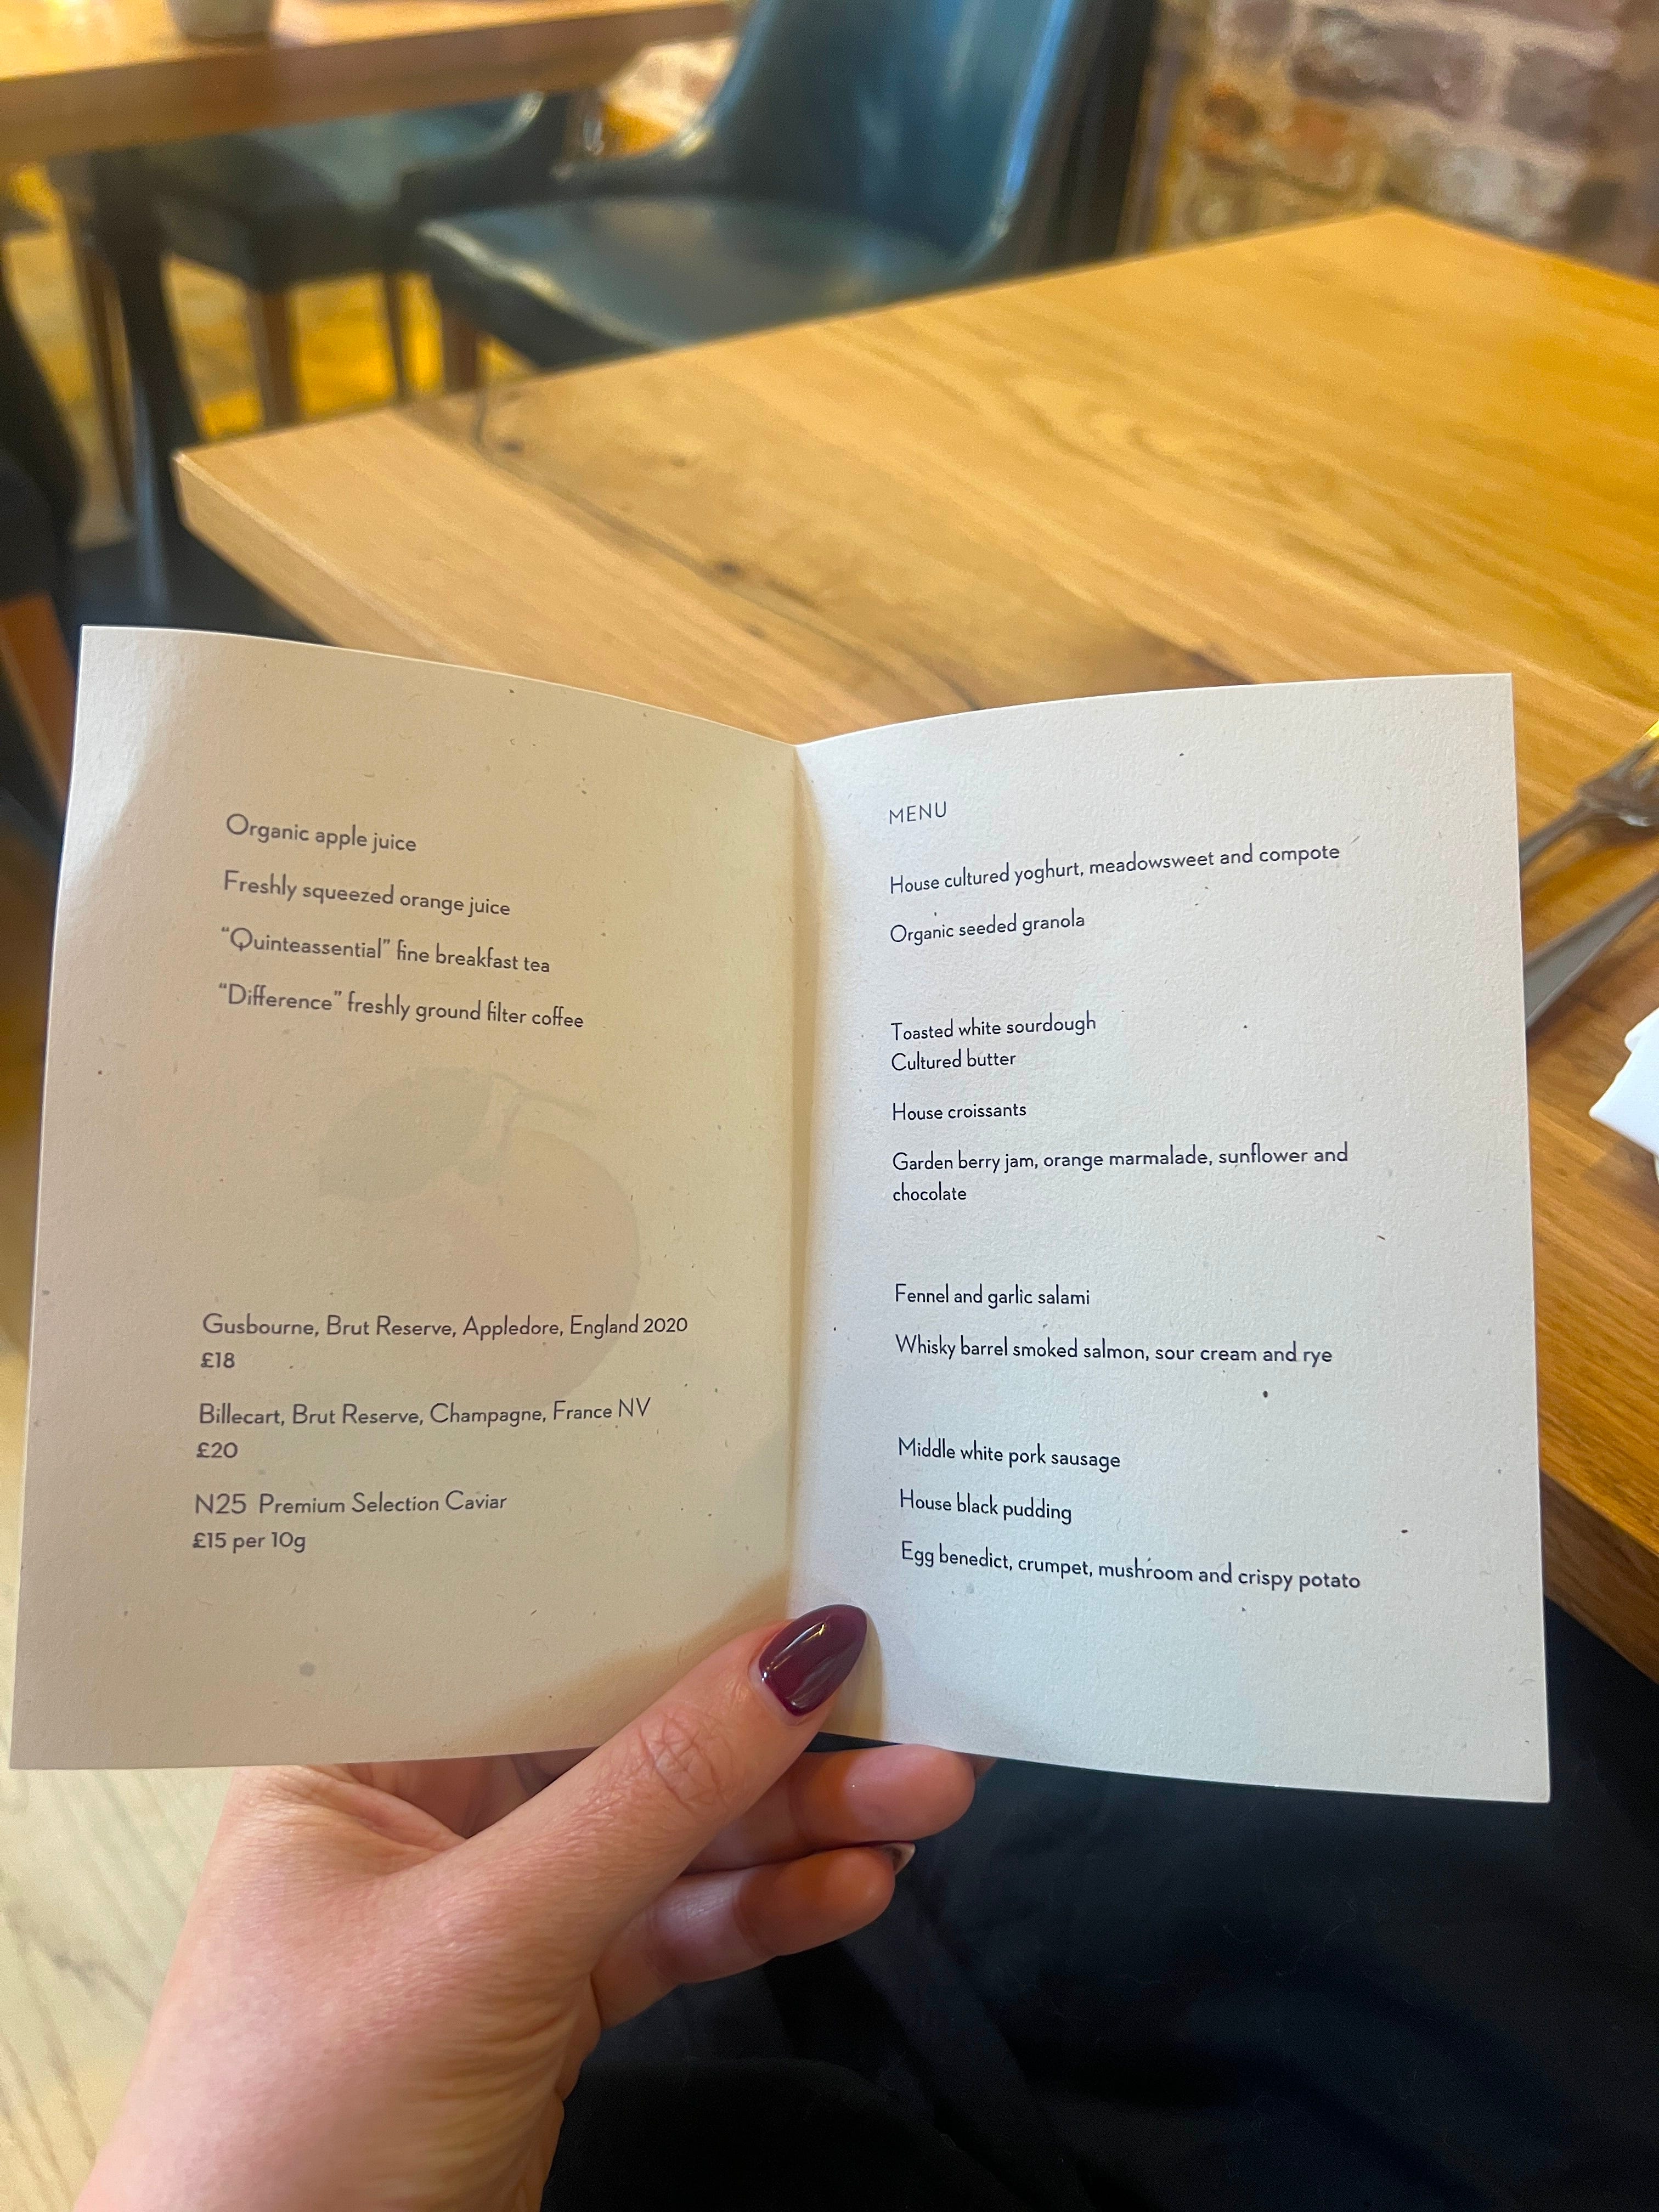 Organic apple juice
Freshly squeezed orange juice
“Quinteassential” fine breakfast tea
“Difference” freshly ground filter coffee
Gusbourne, Brut Reserve, Appledore, England 2020
£18
Billecart, Brut Reserve, Champagne, France NV
£20
N25 Premium Selection Caviar
£15 per 10g
MENU
House cultured yoghurt, meadowsweet and compote
Organic seeded granola
Toasted white sourdough
Cultured butter
House croissants
Garden berry jam, orange marmalade, sunflower and
chocolate
Fennel and garlic salami
Whisky barrel smoked salmon, sour cream and rye
Middle white pork sausage
House black pudding
Egg benedict, crumpet, mushroom and crispy potato